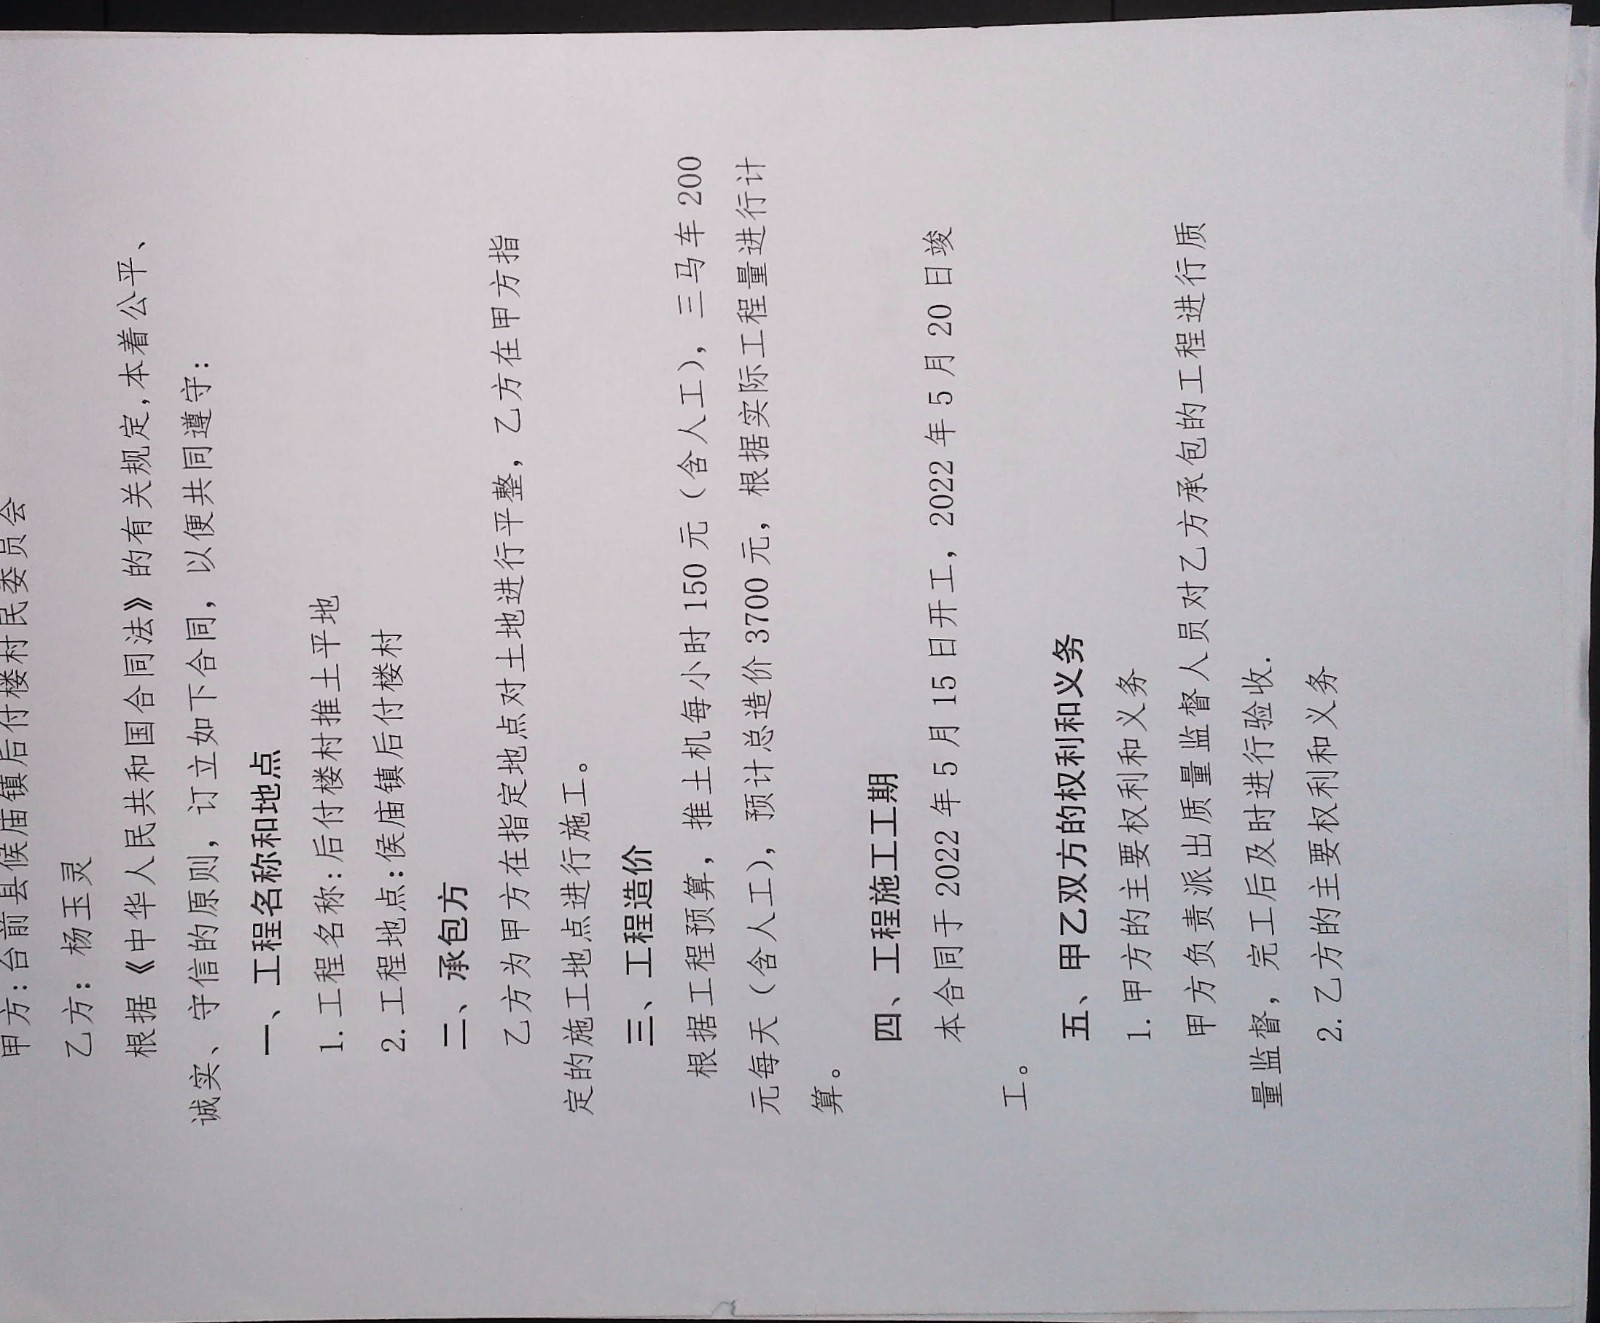 甲方:台前县侯庙镇后付楼村民委员会
乙方: 杨玉灵
根据《中华人民共和国合同法》的有关规定,本着公平、
诚实、守信的原则, 订立如下合同, 以便共同遵守:
一、工程名称和地点
1.工程名称:后付楼村推土平地
2.工程地点:侯庙镇后付楼村
二、承包方
乙方为甲方在指定地点对土地进行平整, 乙方在甲方指
定的施工地点进行施工。
三、工程造价
根据工程预算, 推土机每小时150元(含人工), 三马车200
元每天(含人工), 预计总造价3700元, 根据实际工程量进行计
算。
四、工程施工工期
本合同于2022年5月15日开工, 2022年5月20日竣
工。
五、甲乙双方的权利和义务
1.甲方的主要权利和义务
甲方负责派出质量监督人员对乙方承包的工程进行质
量监督, 完工后及时进行验收.
2.乙方的主要权利和义务